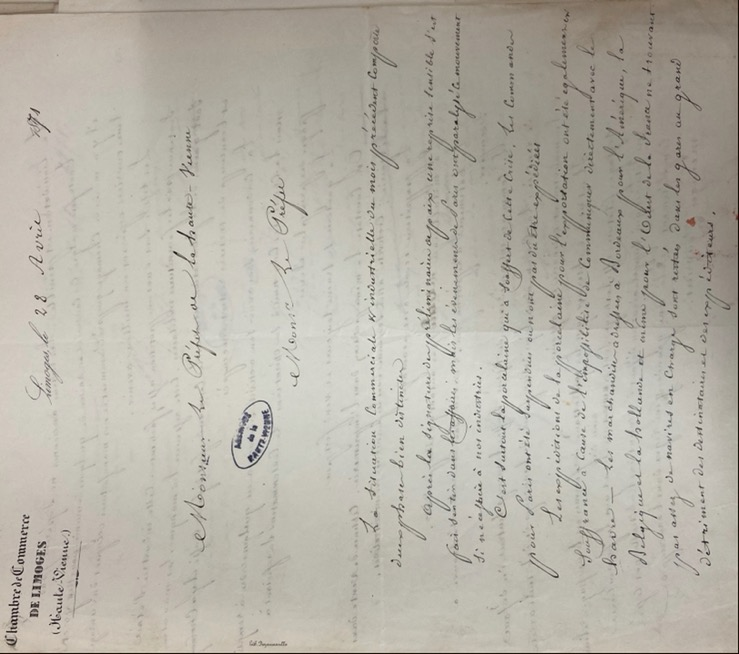 Chambre de Commerce
DE LIMOGES
(Haute-Vienne.)
Limoges, le 28 Avril 1871
Monsieur Le Préfet de la haute-Vienne
ARCHIVES
de la
HAUTE VIENNE
Monsr Le Préfet
La Situation Commerciale & industrielle du mois précédent Comporte
deux phases bien distinctes
Après la Signature des préliminaires de paix une reprise Sensible S'est
fait Sentir dans les affaires, mais les évènements de Paris ont paralysé le mouvement
Si nécessaire à nos industries.
C'est Surtout la porcelaine qui a Souffert de Cette Crise, les Commandes
pour Paris ont été Suspendues ou n'ont pas du être expédiées
Les expéditions de la porcelaine pour l'exportation ont été également en
Souffrance à Cause de l'impossibilité de Communiquer directement avec le
havre — Les marchandises adressées à Bordeaux pour l'Amérique, la
Belgique et la hollande et même pour l'Ouest de la france ne trouvant
pas assez de navires en Charge Sont restées dans les gares au grand
détriment des destinataires et des expéditeurs.